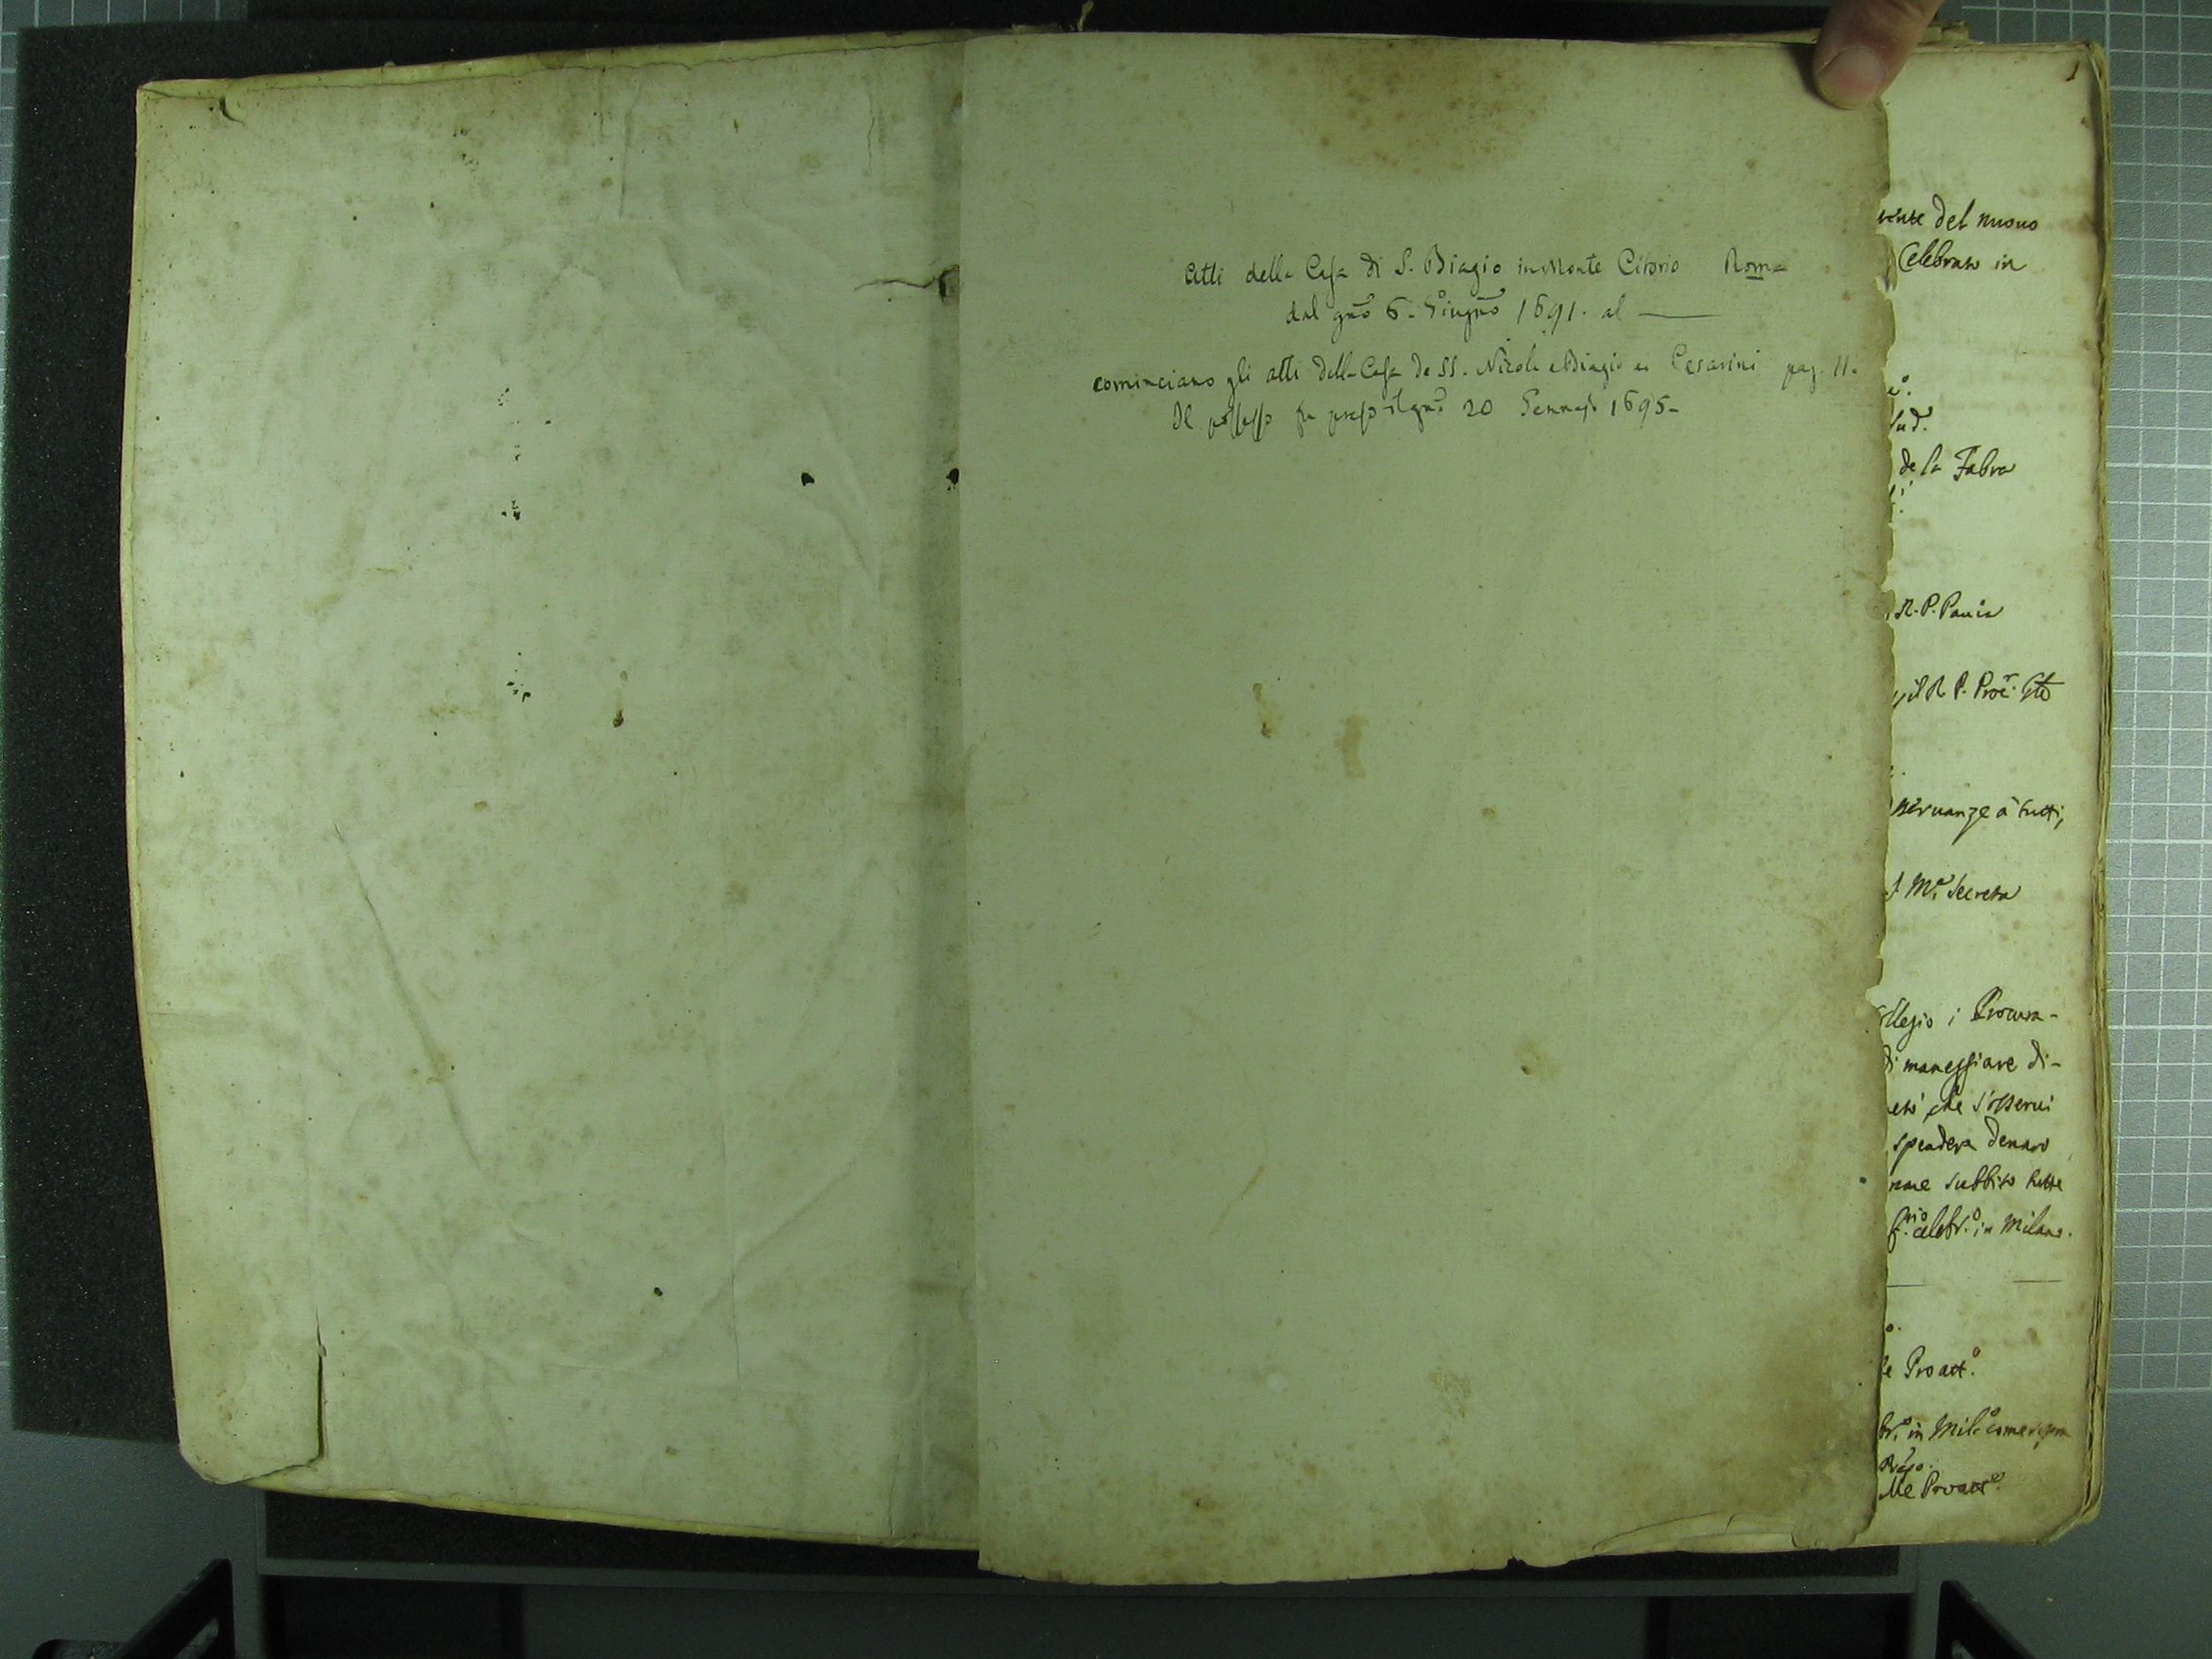 Atti della Casa di S. Biagio in Monte Citorio Roma
dal gno 6. Giugno 1691. al ——
cominciano gli atti della Casa de SS. Nicola e Biagio ai Cesarini pag. 11.
Il possesso fu preso il gno 20 Gennajo 1695-
1
del nuovo
Celebrato in
de la Fabra
R. P. Pavia
il R. P. Proc.r
à tutti,
Secreta
i Procura-
di maneggiare di-
che s'osservi
spendere denaro
subbito tutte
celebr.o in Milano.
Proatt.o
in Mil.o come